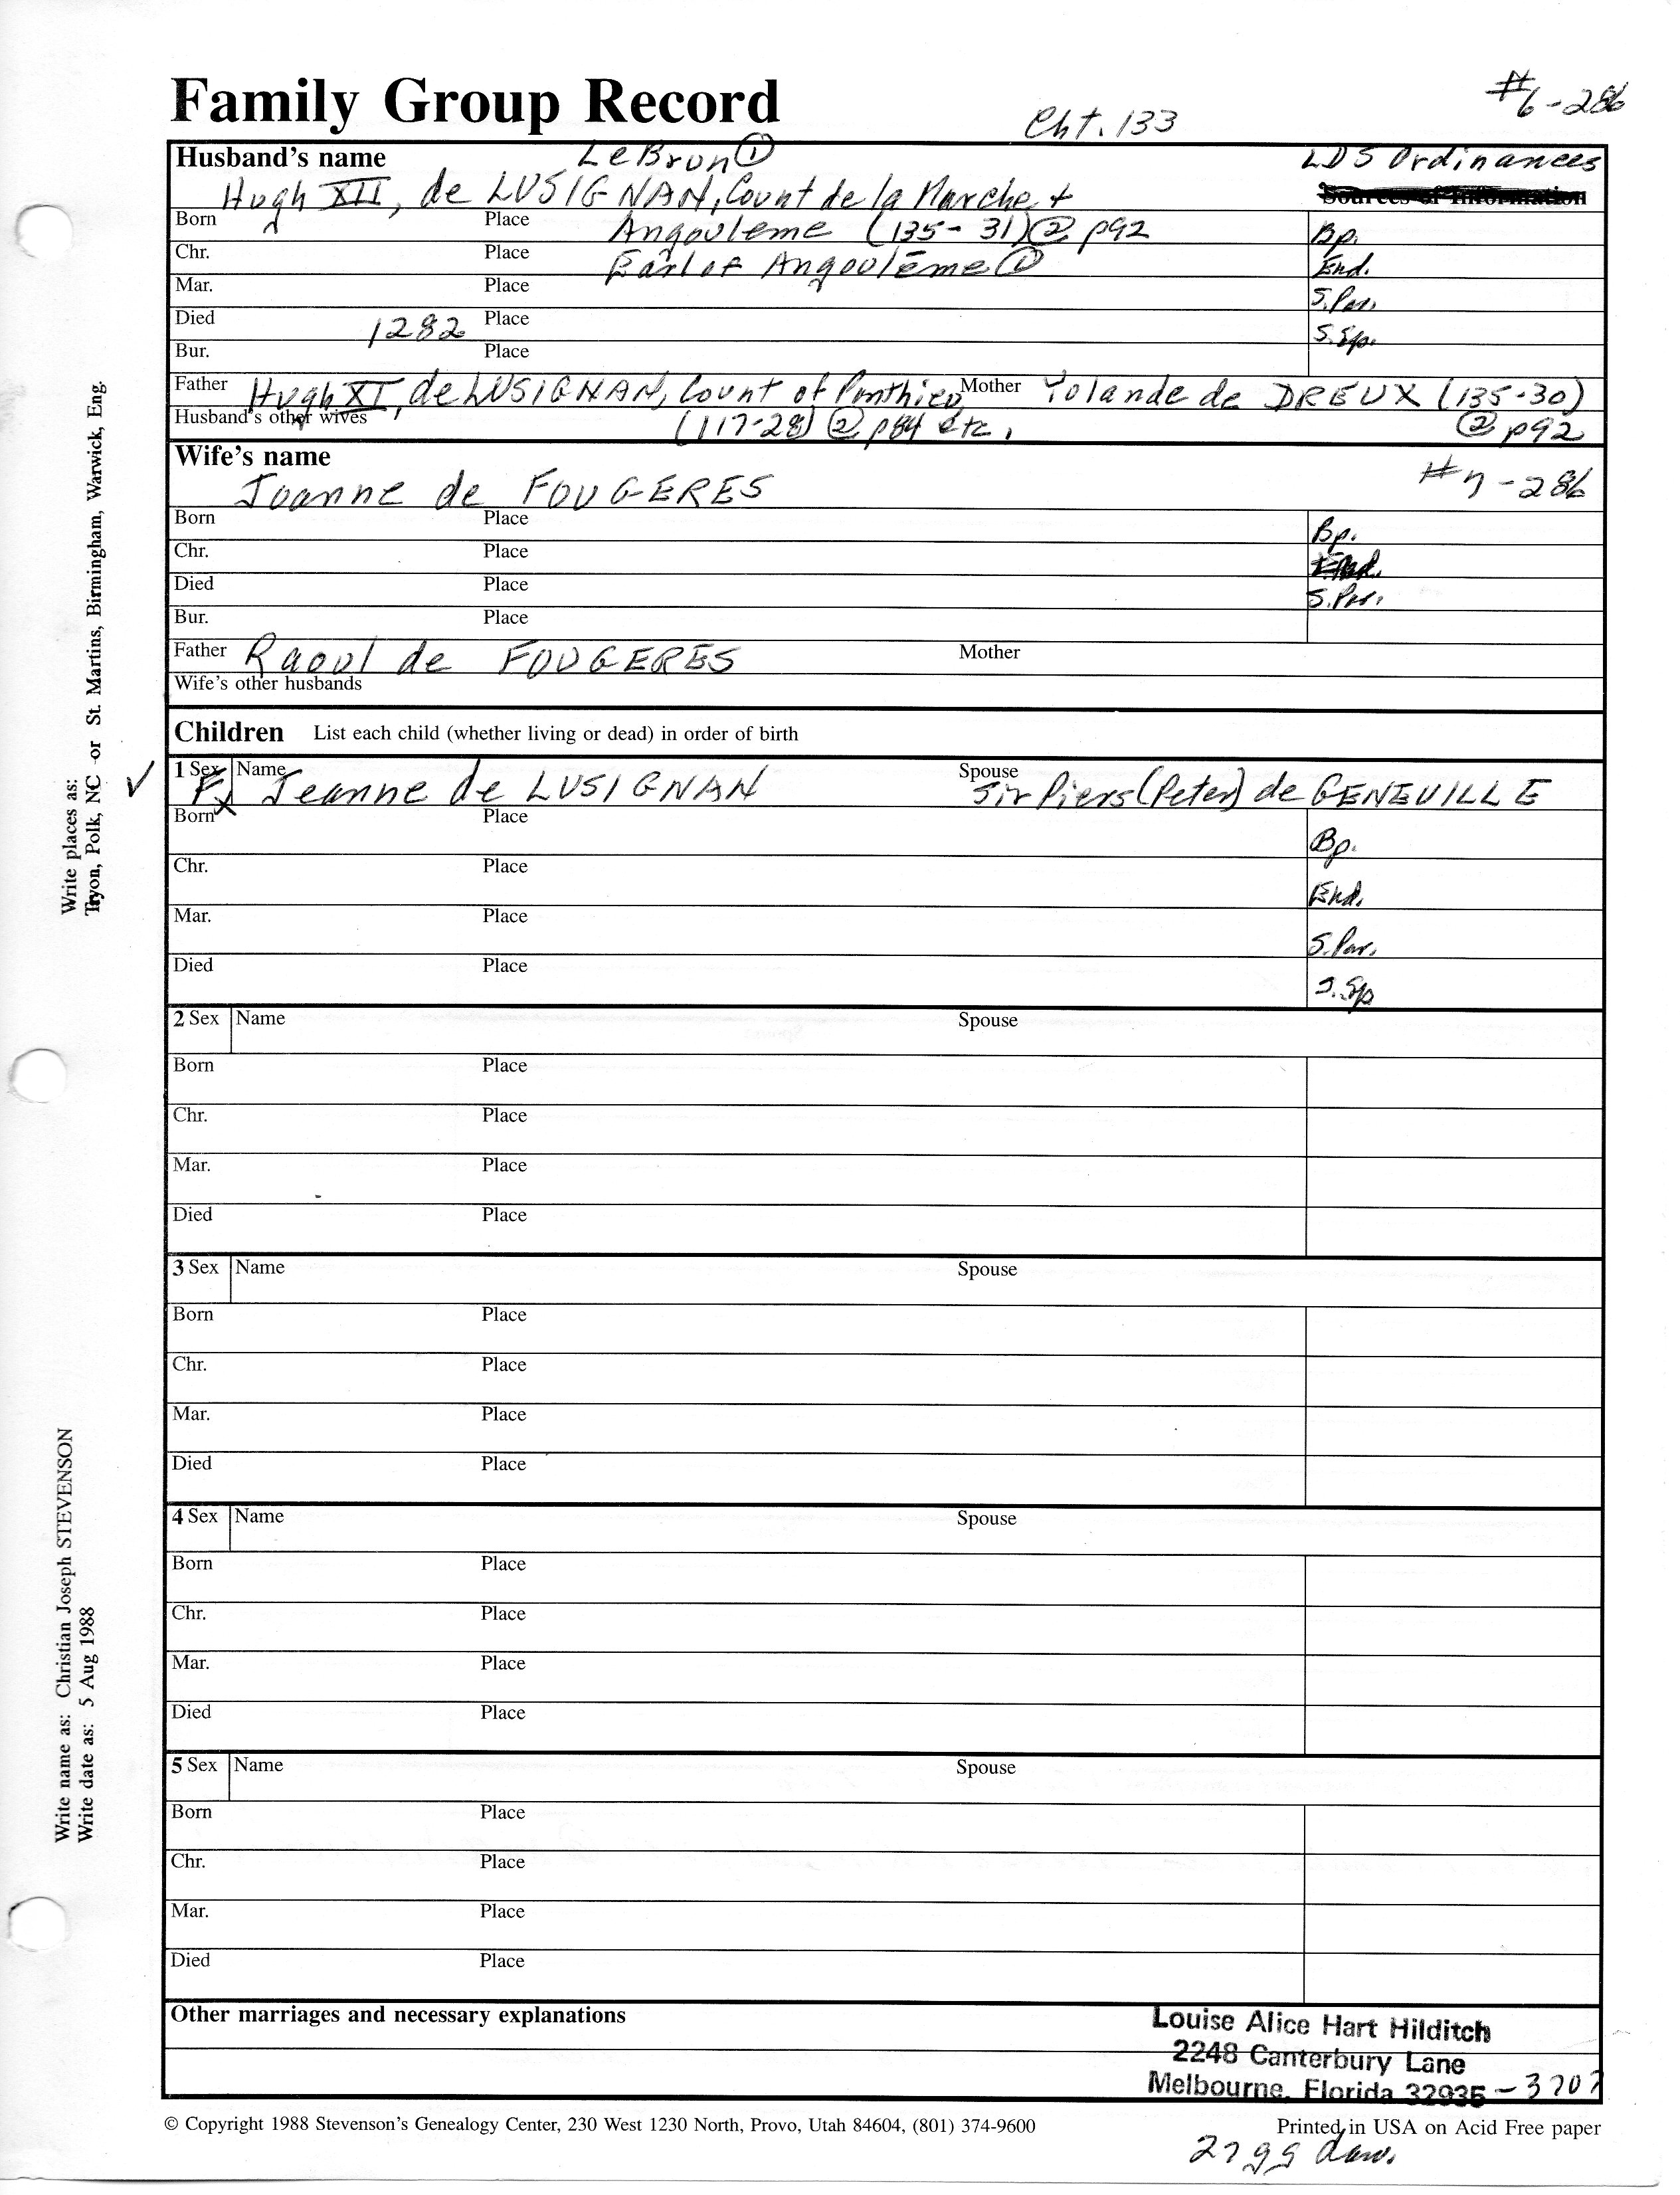 Family Group Record
Cht. 133
#6-286
Husband's name
LeBrun ①
LDS Ordinances
Hugh XII, de LUSIGNAN, Count de la Marche +
Sources of Information
Born Place Angouleme (135-31) ② p92 Bp.
Chr. Place Earl of Angoulême ① End.
Mar. Place S. Par.
Died 1282 Place S. Sp.
Bur. Place
Father Hugh XI, de LUSIGNAN, Count of Ponthieu Mother Yolande de DREUX (135-30)
Husband's other wives (117-28) ② p84 etc. ② p92
Wife's name
Joanne de FOUGERES #7-286
Born Place Bp.
Chr. Place End.
Died Place S. Par.
Bur. Place
Father Raoul de FOUGERES Mother
Wife's other husbands
Children List each child (whether living or dead) in order of birth
✓ 1 Sex F X Name Jeanne de LUSIGNAN Spouse Sir Piers (Peter) de GENEVILLE
Born Place Bp.
Chr. Place End.
Mar. Place S. Par.
Died Place S. Sp
2 Sex Name Spouse
Born Place
Chr. Place
Mar. Place
Died Place
3 Sex Name Spouse
Born Place
Chr. Place
Mar. Place
Died Place
4 Sex Name Spouse
Born Place
Chr. Place
Mar. Place
Died Place
5 Sex Name Spouse
Born Place
Chr. Place
Mar. Place
Died Place
Other marriages and necessary explanations
Louise Alice Hart Hilditch
2248 Canterbury Lane
Melbourne, Florida 32935-3707
© Copyright 1988 Stevenson's Genealogy Center, 230 West 1230 North, Provo, Utah 84604, (801) 374-9600
Printed in USA on Acid Free paper
27 gg dau.
Write places as:
Tryon, Polk, NC -or St. Martins, Birmingham, Warwick, Eng.
Write name as: Christian Joseph STEVENSON
Write date as: 5 Aug 1988